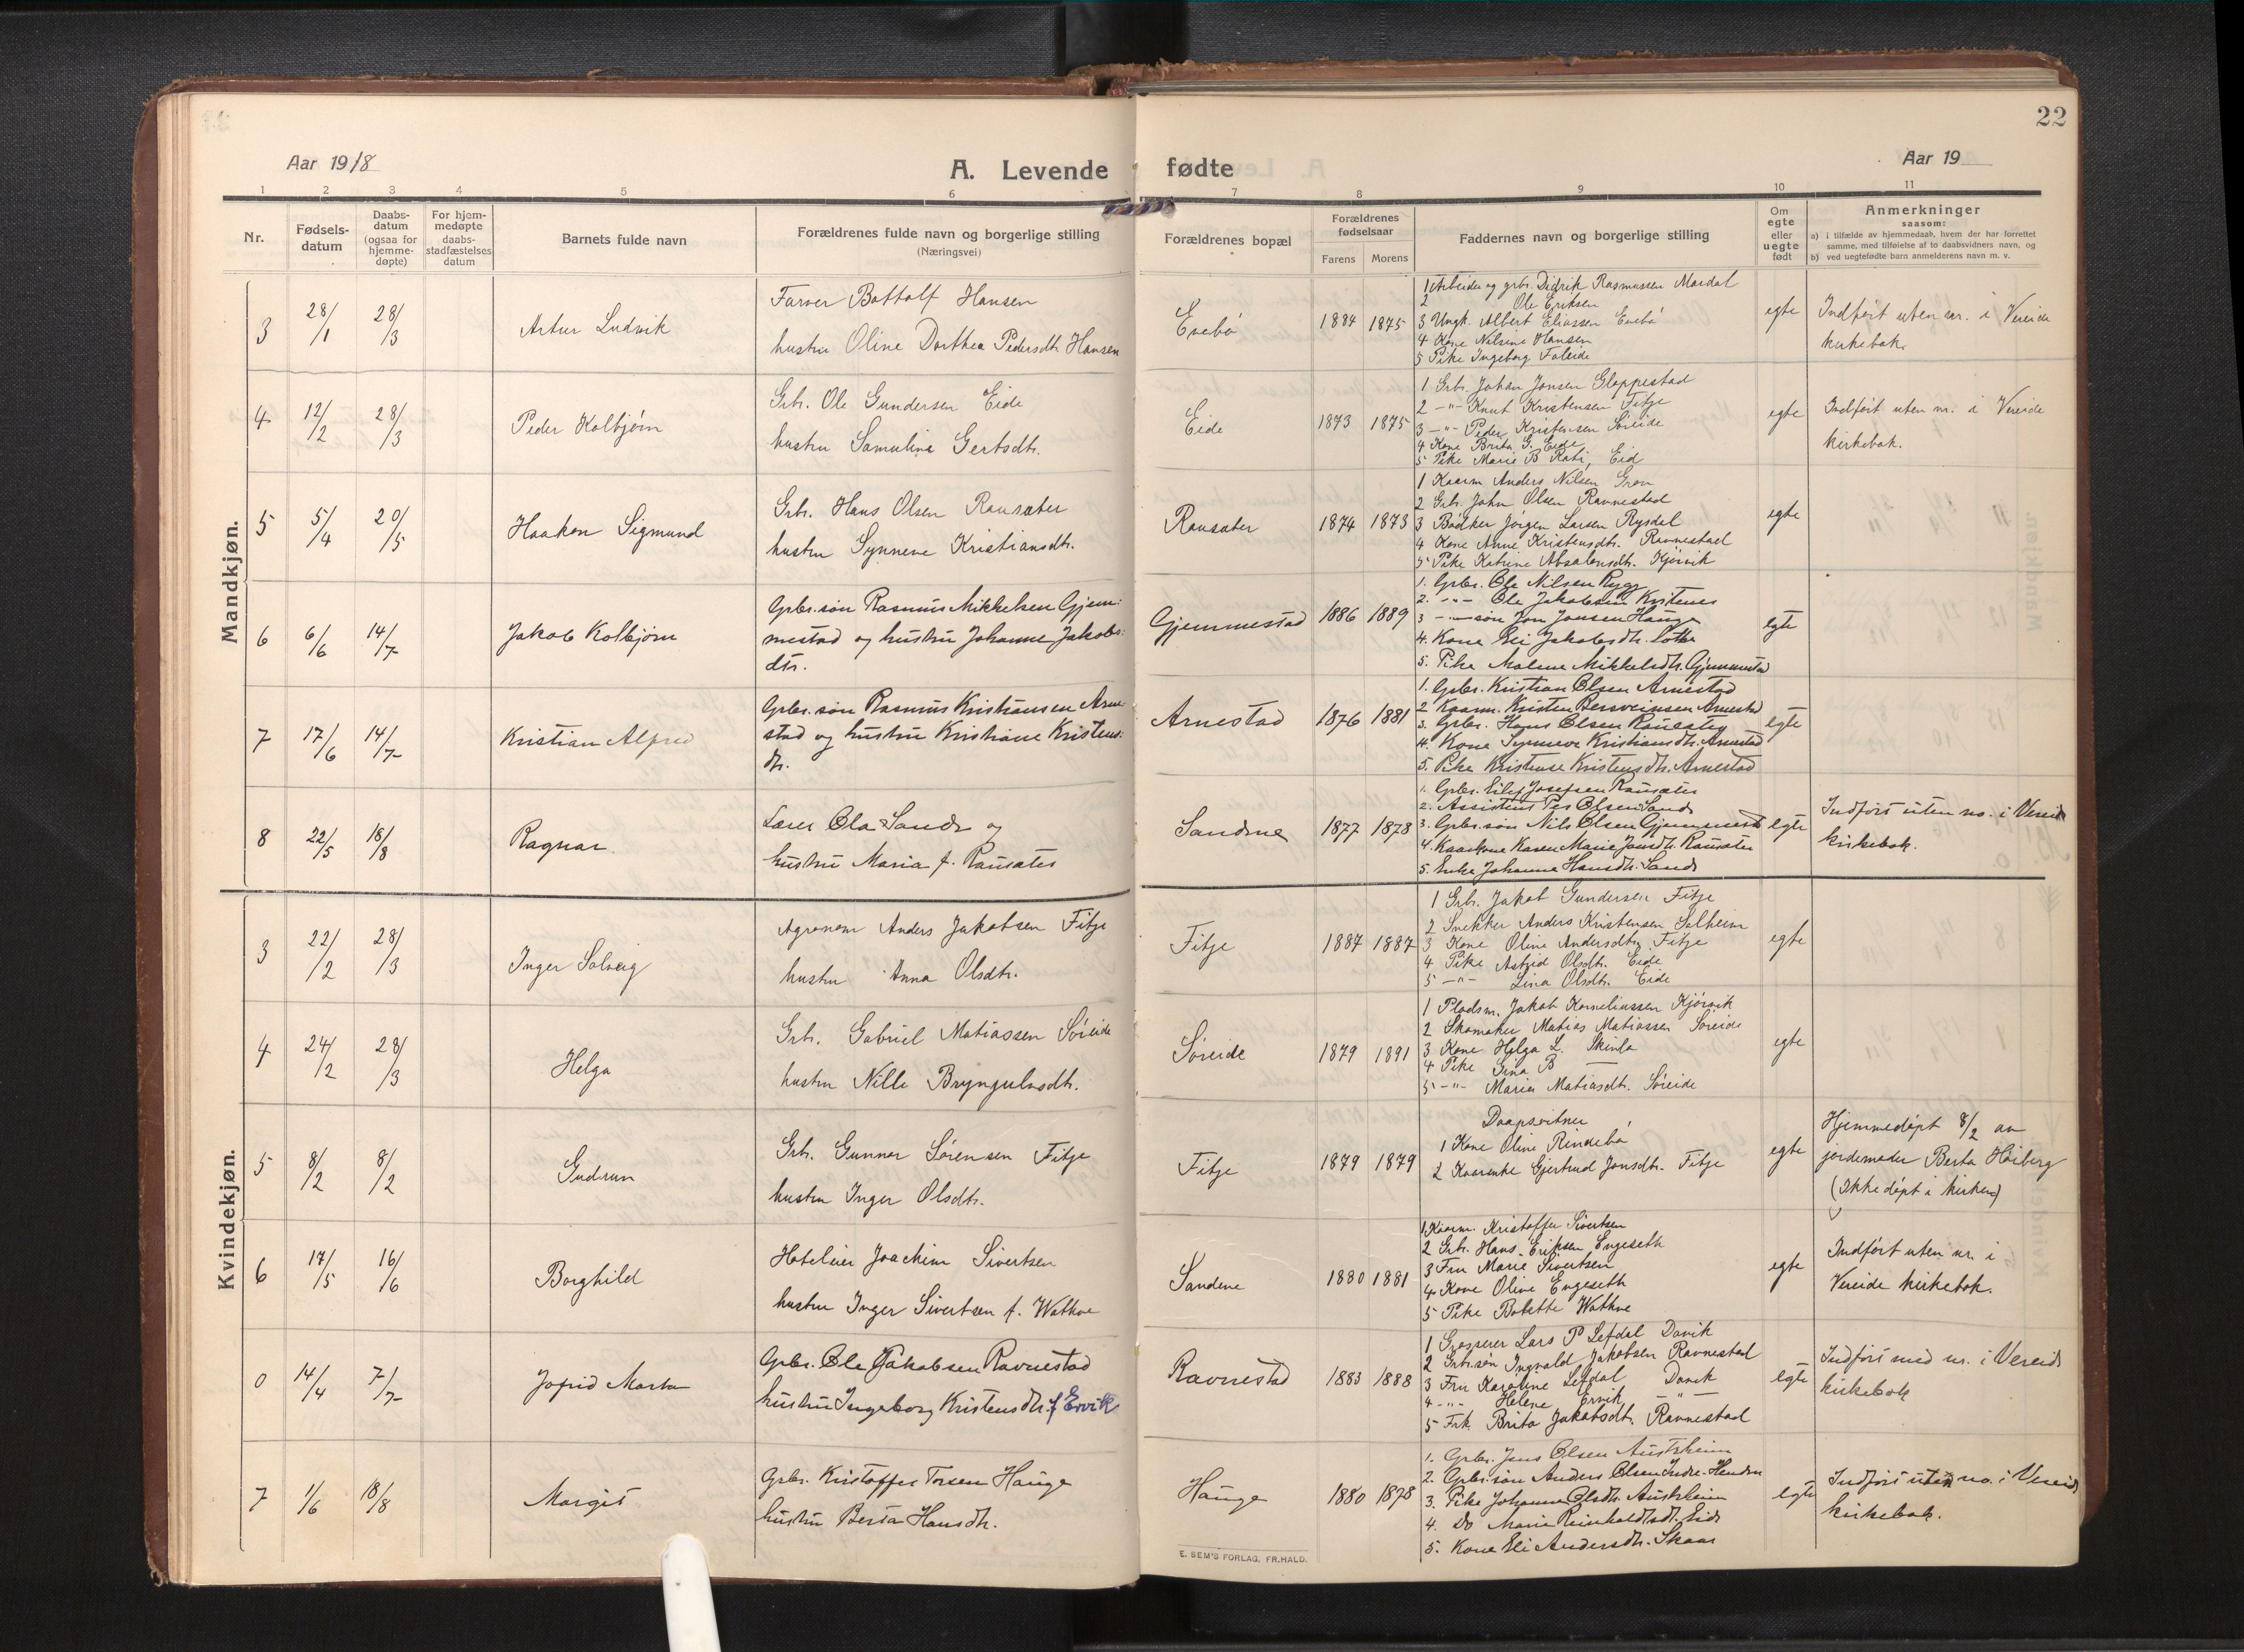 22
Aar 1918
A. Levende fødte
Aar 19
1 2 3 4 5 6 7 8 9 10 11
Nr.
Fødsels-
datum
Daabs-
datum
(ogsaa for
hjemme-
døpte)
For hjem-
medøpte
daabs-
stadfæstelses
datum
Barnets fulde navn
Forældrenes fulde navn og borgerlige stilling
(Næringsvei)
Forældrenes bopæl
Forældrenes
fødselsaar
Farens Morens
Faddernes navn og borgerlige stilling
Om
egte
eller
uegte
født
Anmerkninger
saasom:
a) i tilfælde av hjemmedaab, hvem der har forrettet
samme, med tilføielse af to daabsvidners navn, og
b) ved uegtefødte barn anmelderens navn m. v.
Mandkjøn.
3 28/1 28/3 Artur Ludvik
Farver Bottolf Hansen
hustru Oline Dorthea Pedersdtr. Hansen
Evebø 1884 1875
1 Arbeider og grbr. Didrik Rasmussen Mardal
2 Ole Eriksen
3 Ungk. Albert Eliassen Evebø
4 Kone Nilsine Hansen
5 Pike Ingeborg Faleide
egte
Indført uten nr. i Vereide
kirkebok.
4 12/2 28/3 Peder Kolbjørn
Grbr. Ole Gundersen Eide
hustru Samuline Gertsdtr.
Eide 1873 1875
1 Grbr. Johan Jonsen Gloppestad
2 -"- Knut Kristensen Fitje
3 -"- Peder Kristensen Søreide
4 Kone Brita G. Eide
5 Pike Marie B Eid
egte
Indført uten nr. i Vereide
kirkebok.
5 5/4 20/5 Haakon Sigmund
Grbr. Hans Olsen Rausæter
hustru Synneve Kristiansdtr.
Rausæter 1874 1873
1 Kaarm Anders Nilsen Grøn
2 Grbr. John Olsen Ravnestad
3 Bødker Jørgen Larsen Rysdal
4 Kone Anne Kristensdtr. Ravnestad
5 Pike Katrine Absalonsdtr. Kjørvik
egte
6 6/6 14/7 Jakob Kolbjørn
Grbr.søn Rasmus Mikkelsen Gjem-
mestad og hustru Johanne Jakobs-
dtr.
Gjemmestad 1886 1889
1. Grbr. Ole Nilsen Rygg
2. -"- Ole Jakobsen Kvitenes
3 -"- søn Jon Jonsen Hauge
4. Kone Eli Jakobsdtr. Lothe
5. Pike Malene Mikkelsdtr. Gjemmestad
egte
7 17/6 14/7 Kristian Alfred
Grbr.søn Rasmus Kristiansen Arne-
stad og hustru Kristiane Kristens-
dtr.
Arnestad 1876 1881
1. Grbr. Kristian Olsen Arnestad
2 Kaarm. Kristen Arnestad
3. Grbr. Hans Olsen
4. Kone Synneve Kristiansdtr. Arnestad
5. Pike Kristense Kristensdtr. Arnestad
egte
8 22/5 18/8 Ragnar.
Lærer Ola Sande og
hustru Maria f. Rausæter
Sandene 1877 1878
1. Grbr. Eilef Josefsen Rausæter
2. Assistent Per Olsen Sande
3. Grbr.søn Nils Olsen Gjemmestad
4. Kaarkone Karen Marie Jonsdtr. Rausæter
5. Enke Johanne Hansdtr. Sande
egte
Indført uten no. i Vereide
kirkebok.
Kvindekjøn.
3 22/2 28/3 Inger Solveig
Agronom Anders Jakobsen Fitje
hustru Anna Olsdtr.
Fitje 1887 1887
1 Grbr. Jakob Gundersen Fitje
2 Snekker Anders Kristensen Solheim
3 Kone Oline Andersdtr. Fitje
4 Pike Astrid Olsdtr. Eide
5 -"- Lina Olsdtr. Eide
egte
4 24/2 28/3 Helga
Grbr. Gabriel Matiassen Søreide
hustru Nille Bryngulvsdtr.
Søreide 1879 1891
1 Pladsm. Jakob Korneliussen Kjørvik
2 Skomaker Matias Matiassen Søreide
3 Kone Helga L. Skinlo
4 Pike Sina B —
5 -"- Maria Matiasdtr. Søreide
egte
5 8/2 8/2 Gudrun
Grbr. Gunnar Sørensen Fitje
hustru Inger Olsdtr.
Fitje 1879 1879
Daapsvitner
1 Kone Oline Rindebø
2 Kaarenke Gjertrud Jonsdtr. Fitje
egte
Hjemmedøpt 8/2 av
jordemoder Berta Høiberg
(Ikke døpt i kirken)
6 17/5 16/6 Borghild
Hotelier Joachim Sivertsen
hustru Inger Sivertsen f. Wathne
Sandene 1880 1881
1. Kaarm. Kristoffer Sivertsen
2 Grbr. Hans Eriksen Engeseth
3 Fru Marie Sivertsen
4 Kone Oline Engeseth
5 Pike Bolette Wathne
egte
Indført uten nr. i
Vereide kirkebok.
0 14/4 7/7 Jofrid Marta
Grbr. Ole Jakobsen Ravnestad
hustru Ingeborg Kristensdtr. f Ervik
Ravnestad 1883 1888
1 Grosserer Lars P Lefdal Davik
2 Grbr.søn Ingvald Jakobsen Ravnestad
3 Fru Karoline Lefdal Davik
4 -"- Helene Ervik -"-
5 Frk. Brita Jakobsdtr. Ravnestad
egte
Indført med nr. i Vereide
kirkebok
7 1/6 18/8 Margit
Grbr. Kristoffer Torsen Hauge
hustru Berta Hansdtr.
Hauge 1880 1878
1. Grbr. Jens Olsen Austrheim
2. Grbr.søn Anders Olsen Indre-Henden
3. Pike Johanne Olsdtr. Austrheim
4. Do Marie Reinholdtsdtr. Eide
5. Kone Eli Andersdtr. Skaar
egte
Indført uten no. i Vereide
kirkebok.
E. SEM'S FORLAG, FR.HALD.